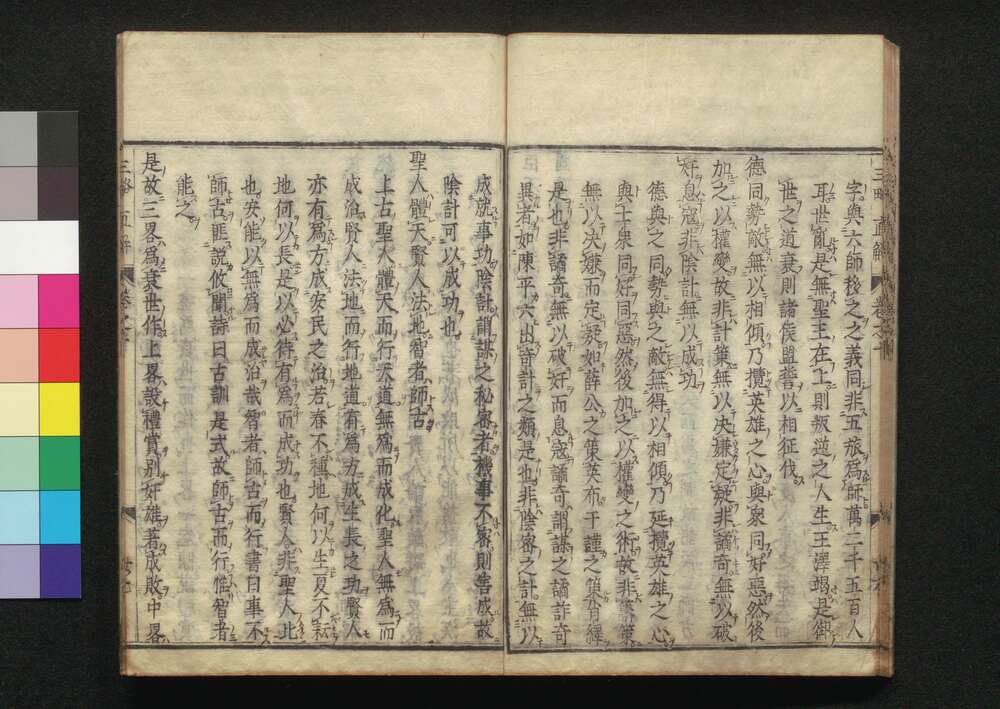 字與六師後之之義同非五旅爲師萬二千五百人
耳世亂是無聖王在上則叛逆之人生王澤竭是衰
世之道衰則諸侯盟誓以相征伐
德同勢敵無以相傾乃攬英雄之心與衆同好惡然後
加之以權變故非計策無以决嫌定疑非譎奇無以破
奸息寇非陰計無以成功
德與之同勢與之敵無得以相傾乃延攬英雄之心
與士衆同好同惡然後加之以權變之術故非籌策
無以决嫌而定疑如薛公之策英布于謹之策肖繹
是也非譎奇無以破奸而息寇譎奇謂謀之譎詐奇
異者如陳平六出奇計之類是也非陰密之計無以
成就事功陰計謂謀之秘密者機事不密則害成故
陰計可以成功也
聖人體天賢人法地智者師古
上古聖人體天而行天道無爲而成化聖人無爲而
成治賢人法地而行地道有爲方成生長之功賢人
亦有爲方成安民之治若春不種地何以生夏不耘
地何以長是以必待有爲而成功也賢人非聖人比
也安能以無爲而成治哉智者師古而行書曰事不
師古匪説攸聞詩曰古訓是式故師古而行惟智者
能之
是故三畧爲衰世作上畧設禮賞别奸雄著成敗中畧